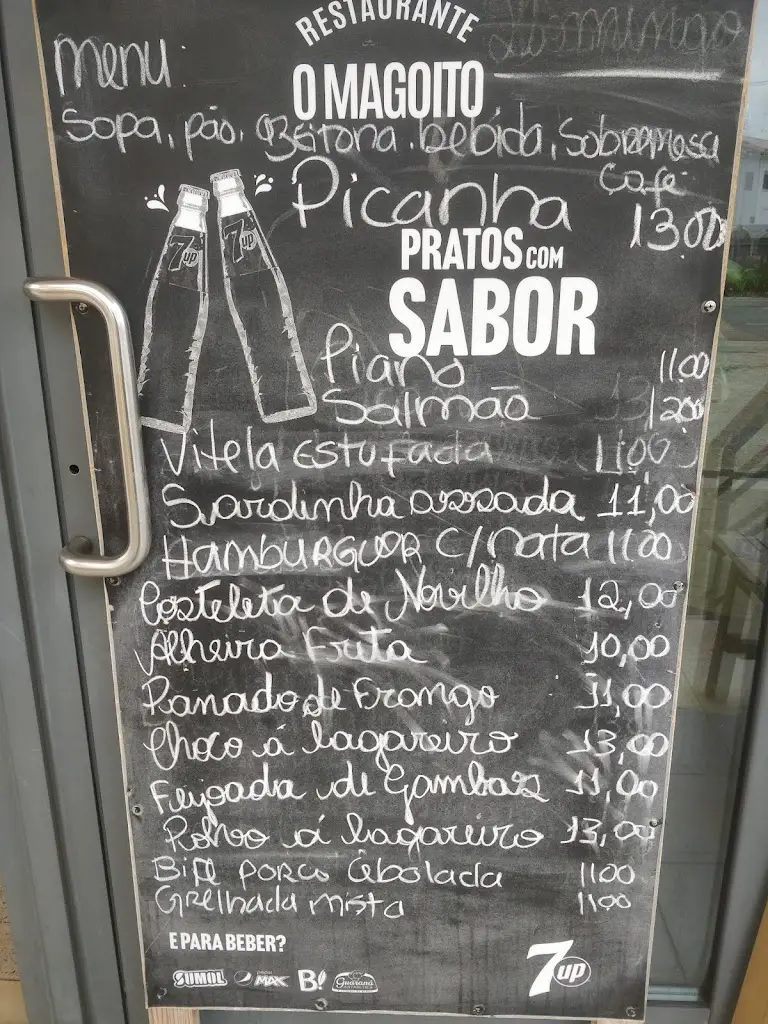 RESTAURANTE
Domingo
menu.
O MAGOITO
Sopa, pão, Azeitona, bebida, Sobremesa
Café
Picanha 13.00
7up 7up
PRATOS COM
SABOR
Piano 11.00
Salmão 12.00
Vitela estufada 11.00
Sardinha assada 11,00
HAMBURGUER C/nata 11 00
Costeleta de Novilho 12,00
Alheira Frita 10,00
Panado de Frango 11,00
Choco á lagareiro 13,00
Feijoada de Gambas 11,00
Polvo á lagareiro 13,00
Bife porco Cebolada 11 00
Grelhada mista 11 00
E PARA BEBER?
SUMOL pepsi MAX B! Guaraná
7up